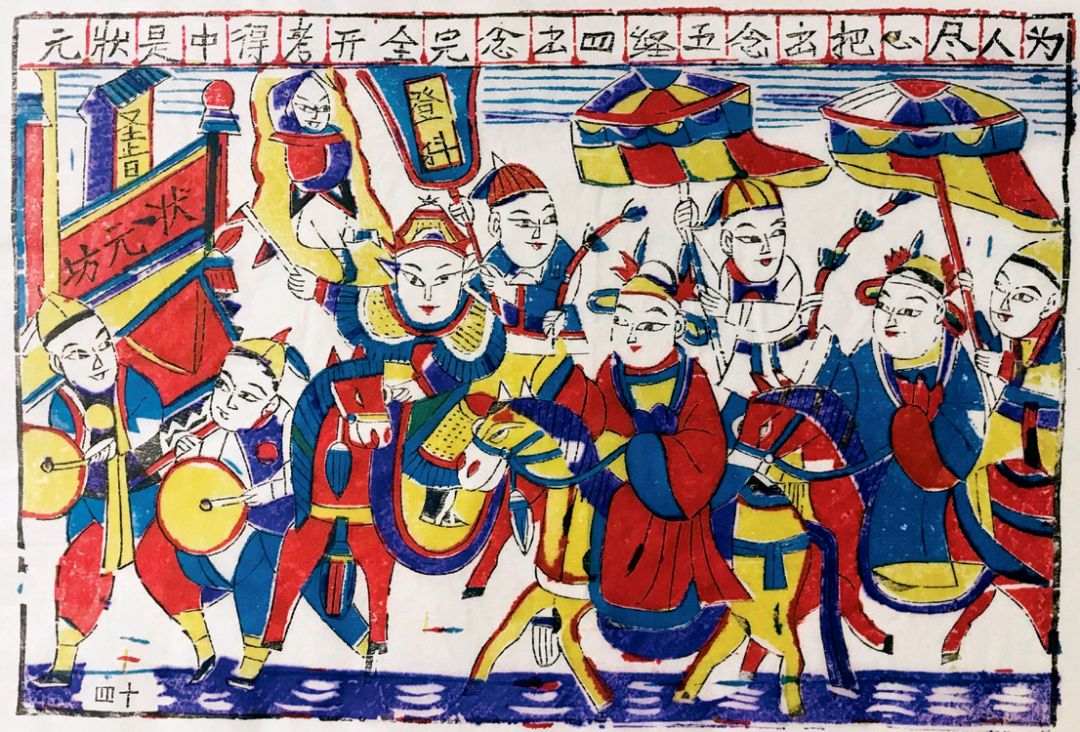 为人尽心把书念五经四书念完全开考得中是狀元
登科
圣旨
状元坊
十四